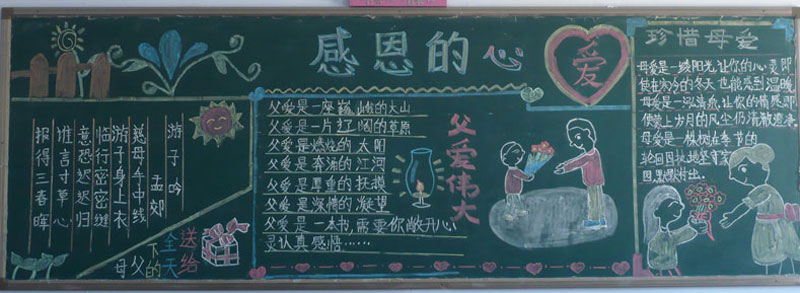 感恩的心
游子吟
孟郊
慈母手中线
游子身上衣
临行密密缝
意恐迟迟归
谁言寸草心
报得三春晖
送给
全天
下的
父
母
父爱是一座巍峨的大山
父爱是一片辽阔的草原
父爱是燃烧的太阳
父爱是奔涌的江河
父爱是厚重的抚摸
父爱是深情的凝望
父爱是一本书,需要你敞开心
灵认真感悟……
父爱伟大
爱
珍惜母爱
母爱是一缕阳光,让你的心灵即
使在寒冷的冬天也能感到温暖
母爱是一泓清泉,让你的情感即
使蒙上岁月的风尘仍清澈
母爱是一棵树,在季节的
轮回里地坚守家
园默默付出.